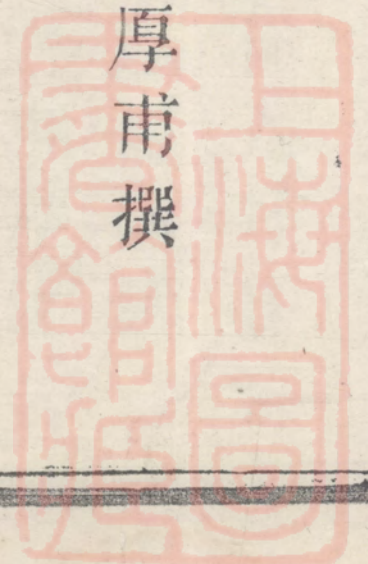 厚甫撰
上海圖
書館藏